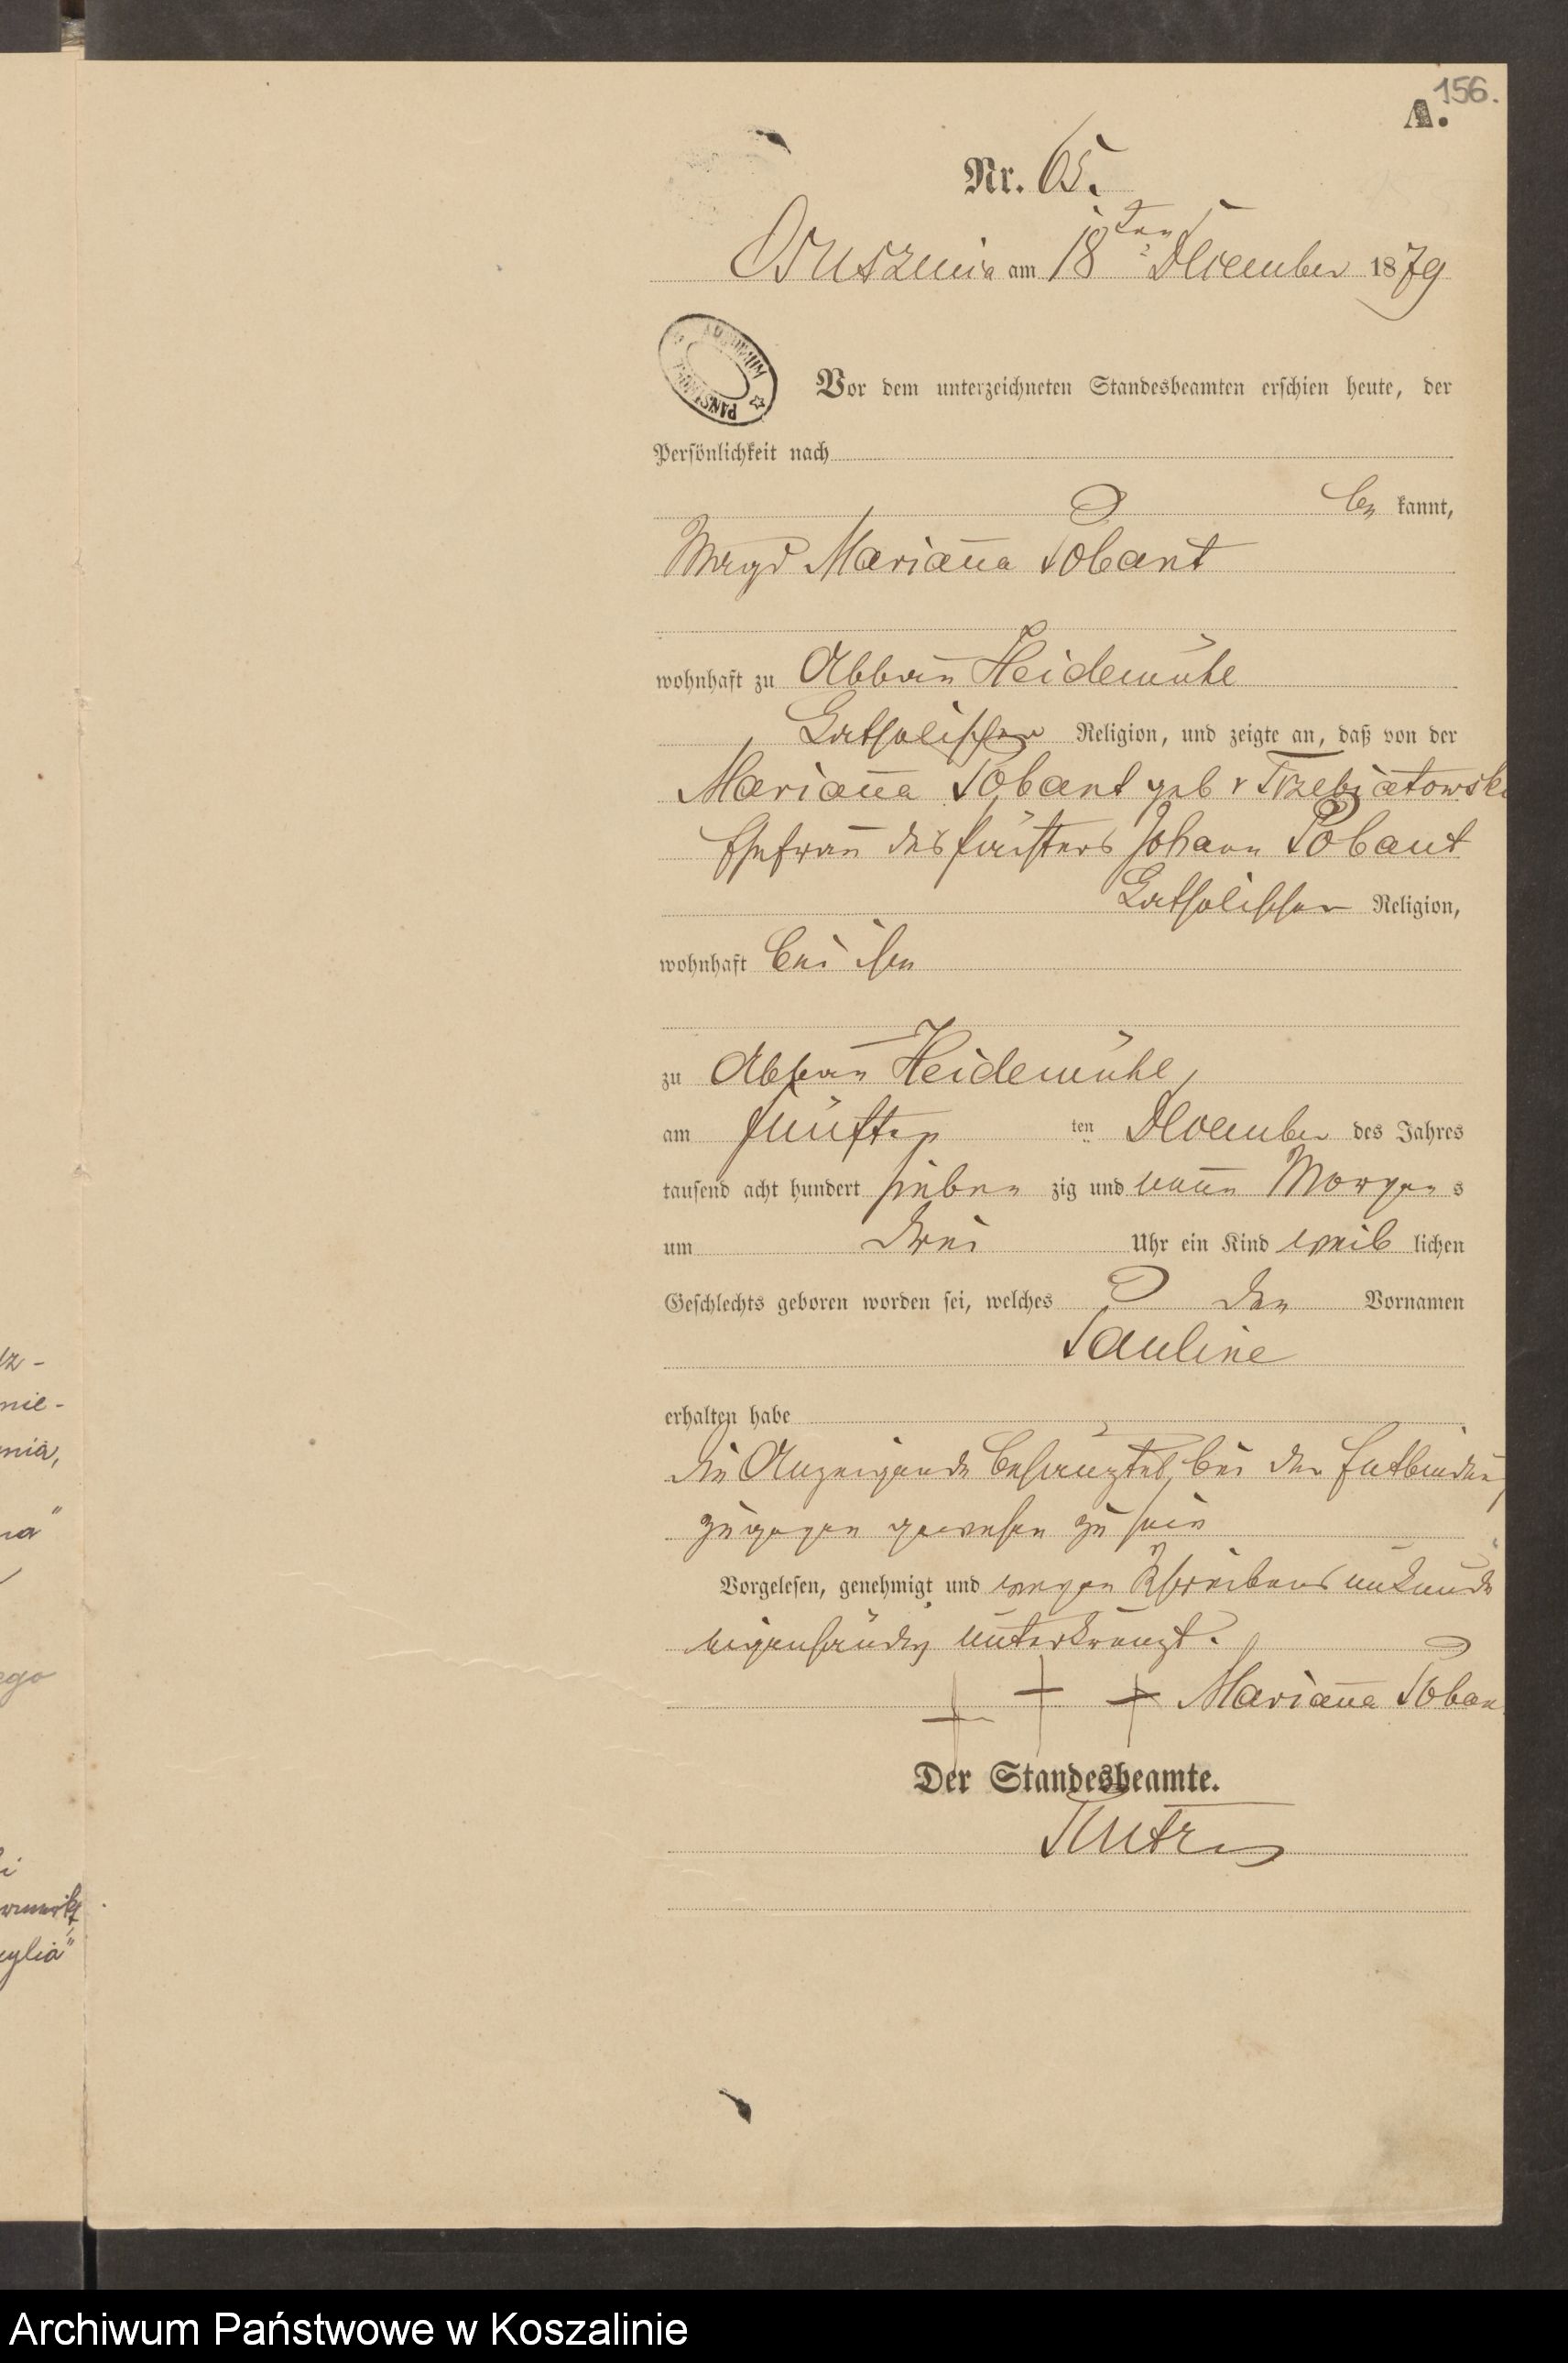 156.
A.
Nr. 65.
am 18ten December 1879
ARCHIWUM PAŃSTWOWE
Vor dem unterzeichneten Standesbeamten erschien heute, der
Persönlichkeit nach
be kannt,
Marianna Pobant
wohnhaft zu Abbau Heidemühl
katholischer Religion, und zeigte an, daß von der
Marianna Pobant geb v Trzebiatowsk
Ehefrau des Försters Johann Pobant
katholischer Religion,
wohnhaft bei ihm
zu Abbau Heidemühl,
am fünften ten December des Jahres
tausend acht hundert sieben zig und neun Morgen s
um drei Uhr ein Kind weib lichen
Geschlechts geboren worden sei, welches den Vornamen
Pauline
erhalten habe
die Anzeigende behauptet, bei der Entbindung
zugegen gewesen zu sein
Vorgelesen, genehmigt und wegen Schreibens unkunde
eigenhändig unterkreuzt.
+ + + Marianna Poban
Der Standesbeamte.
nie-
nia,
ego
Archiwum Państwowe w Koszalinie